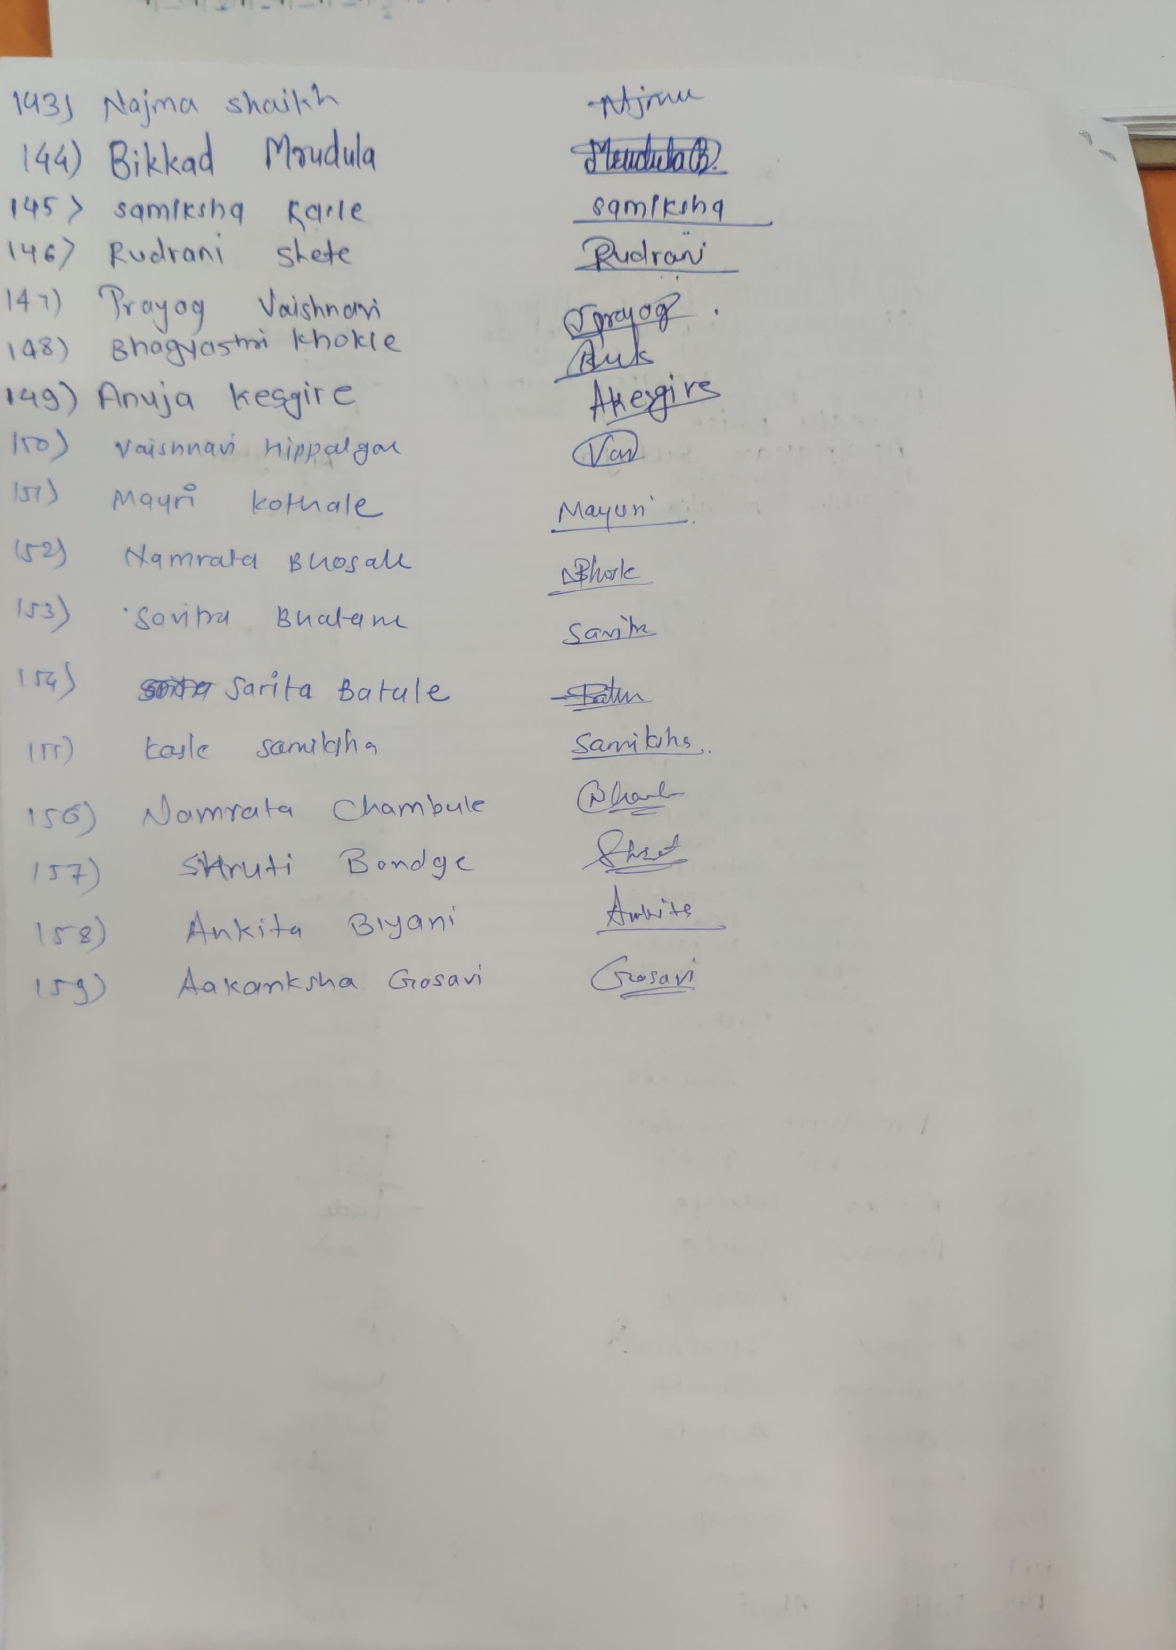 143) Najma shaikh Najma
144) Bikkad Mrudula Mrudula B.
145) samiksha Karle samiksha
146) Rudrani shete Rudrani
147) Prayog Vaishnavi prayog
148) Bhagyashri Khokle
149) Anuja kesgire Akesgire
150) Vaishnavi Hippalgar Vai
151) Mayri kothale Mayuri
152) Namrata Bhosale
153) Savitra Bhatane Savitr
154) Sarita Batule
155) karle samiksha Samiksha
156) Namrata Chambule
157) Shruti Bondge
158) Ankita Biyani Ankita
159) Aakanksha Gosavi Gosavi